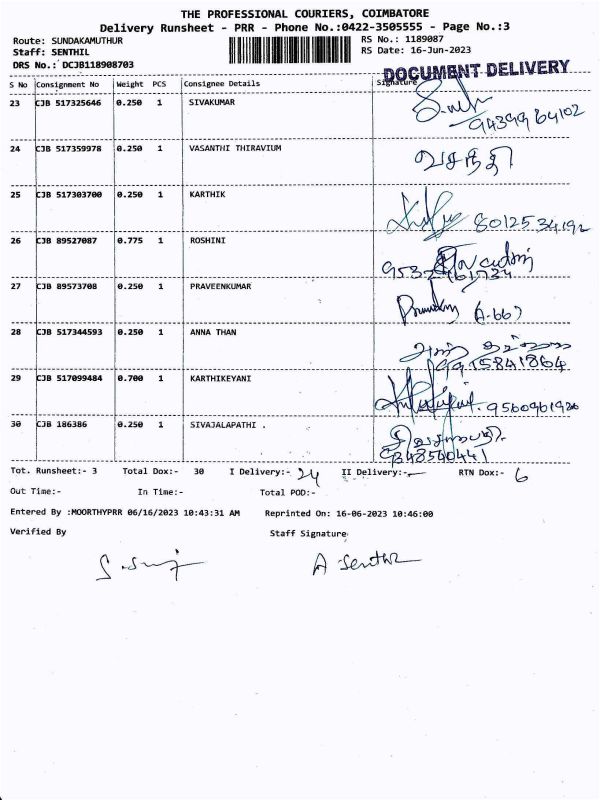 THE PROFESSIONAL COURIERS, COIMBATORE
Delivery Runsheet - PRR - Phone No.:0422-3505555 - Page No.:3
Route: SUNDAKAMUTHUR RS No.: 1189087
Staff: SENTHIL RS Date: 16-Jun-2023
DRS No.: DCJB118908703
DOCUMENT DELIVERY
S No Consignment No Weight PCS Consignee Details Signature
23 CJB 517325646 0.250 1 SIVAKUMAR
94399 64102
24 CJB 517359978 0.250 1 VASANTHI THIRAVIUM வசந்தி
25 CJB 517303700 0.250 1 KARTHIK 8012534192
26 CJB 89527087 0.775 1 ROSHINI
27 CJB 89573708 0.250 1 PRAVEENKUMAR
28 CJB 517344593 0.250 1 ANNA THAN
9915841864
29 CJB 517099484 0.700 1 KARTHIKEYANI 9560961926
30 CJB 186386 0.250 1 SIVAJALAPATHI .
9348540441
Tot. Runsheet:- 3 Total Dox:- 30 I Delivery:- 24 II Delivery:- RTN Dox:- 6
Out Time:- In Time:- Total POD:-
Entered By :MOORTHYPRR 06/16/2023 10:43:31 AM Reprinted On: 16-06-2023 10:46:00
Verified By Staff Signature
A Senthil